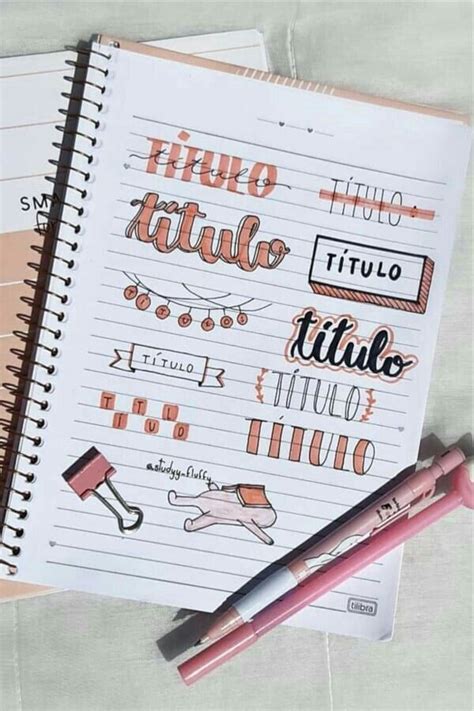 TÍTULO
título
TÍTULO
título
TÍTULO
TITULOS
título
TÍTULO
TÍTULO
T T L
I U O
TÍTULO
@studyy_fluffy
tilibra